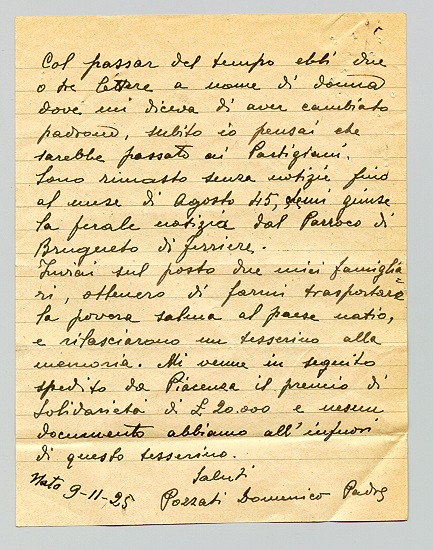 Col passar del tempo ebbi due
o tre lettere a nome di donna
dove mi diceva di aver cambiato
padrone, subito io pensai che
sarebbe passato ai Partigiani.
Sono rimasto senza notizie fino
al mese di Agosto 45, mi giunse
la ferale notizia dal Parroco di
Brugneto di ferriere.
Inviai sul posto due miei famiglia
ri, ottenero di farmi trasportare
la povera salma al paese natio,
e rilasciarono un tesserino alla
memoria. Mi venne in seguito
spedito da Piacenza il premio di
Solidarietà di £ 20.000 e nesun
documento abbiamo all'infuori
di questo tesserino.
Saluti
Nato 9-11-25 Pozzati Domenico Padre